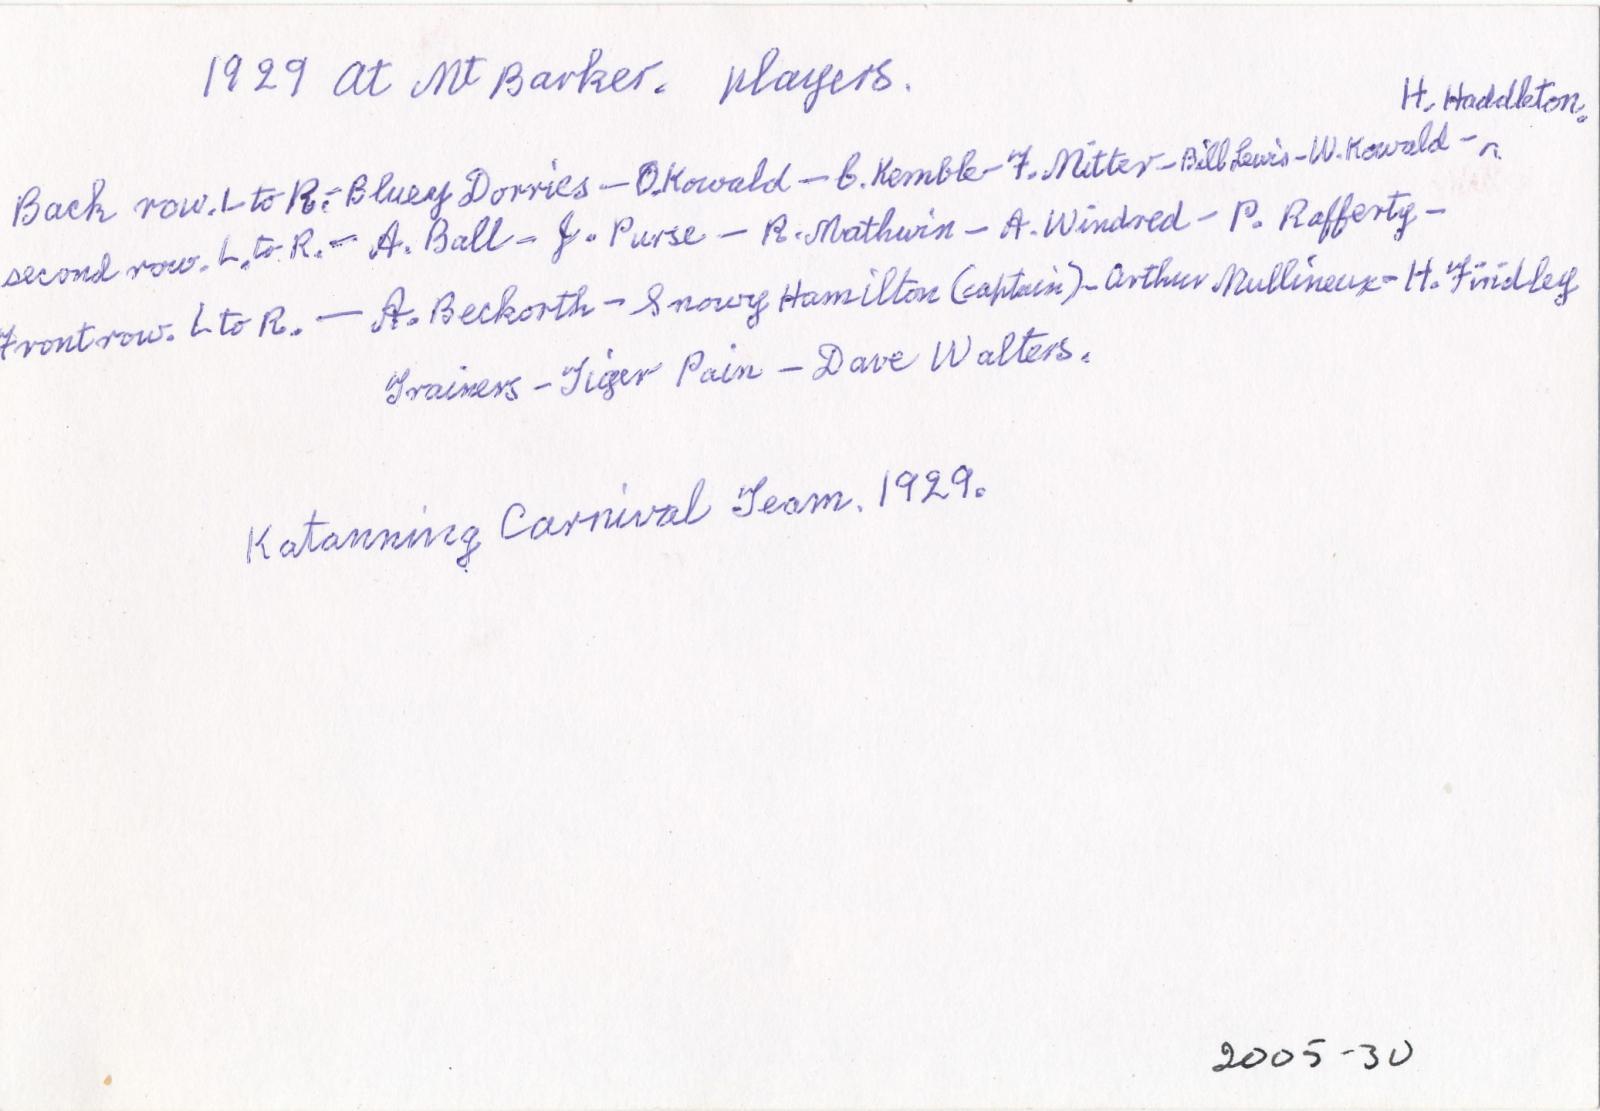 1929 at Mt Barker. players.
H. Haddleton.
Back row. L to R:- Bluey Dorries - O. Kowald - C. Kemble - F. Mitter - Bill Lewis - W. Kowald -
second row. L. to R. - A. Ball - J. Purse - R. Mathwin - A. Windred - P. Rafferty -
Front row. L to R. - A. Beckorth - Snowy Hamilton (captain) - Arthur Mullineux - H. Findley
Trainers - Tiger Pain - Dave Walters.
Katanning Carnival Team. 1929.
2005-30